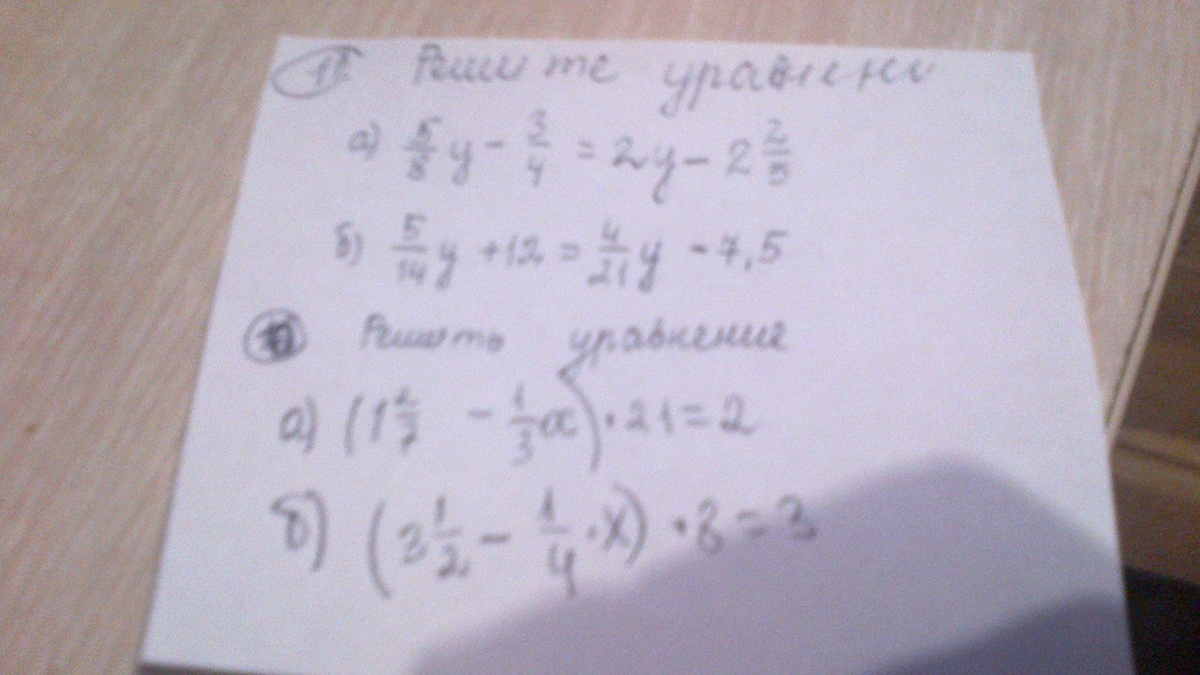 Решите уравнени
а) 5/8 у - 3/4 = 2у - 2 2/3
б) 5/14 у + 12 = 4/21 у - 7,5
Решеть уравнение
а) (1 2/7 - 1/3 x) · 21 = 2
б) (3 1/2 - 1/4 · X) · 8 = 3